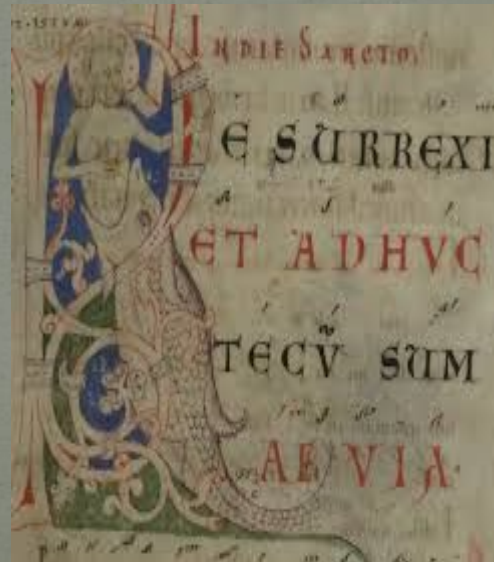 IN DIE SANCTO
RESURREXI
ET ADHUC
TECŪ SUM
AEVIA